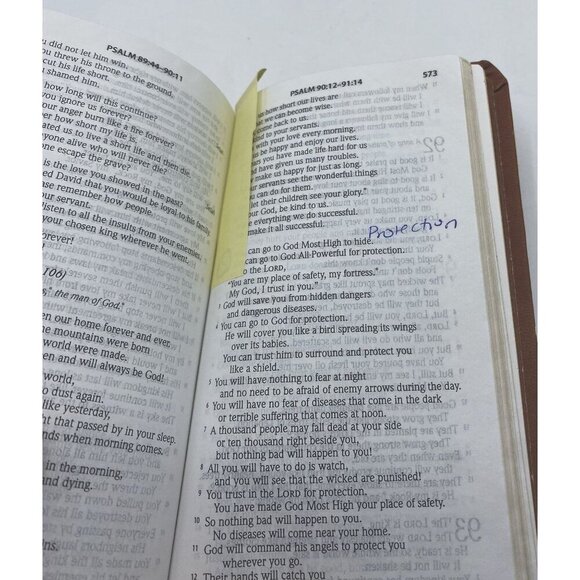 PSALM 89:44–90:11
did not let him win.
threw his throne to the ground.
cut his life short.
shamed him.
how long will this continue?
you ignore us forever?
your anger burn like a fire forever?
how short my life is.
created us to live a short life and then die.
one alive who will never die?
one escape the grave?
is the love you showed in the past?
David that you would be loyal to his family
please remember how people
your servant.
listen to all the insults from your enemies,
your chosen king wherever he went.
forever!
106)
the man of God.
been our home forever and ever.
the mountains were born
world were made.
been and will always be God!
world,
to dust again.
like yesterday,
night that passed by in your sleep.
ends when morning comes.
in the morning,
and dying.
PSALM 90:12–91:14 573
us how short our lives are
we can become wise.
come back to us.
to your servants.
with your love every morning.
be happy and enjoy our lives.
years you have made life hard for us
and have given us many troubles.
make us happy for just as long.
your servants see the wonderful things
can do for them.
let their children see your glory."
our God, be kind to us.
everything we do successful.
make it all successful.
Protection
can go to God Most High to hide.
can go to God All-Powerful for protection.
to the LORD,
"You are my place of safety, my fortress."
My God, I trust in you."
God will save you from hidden dangers
and dangerous diseases.
4 You can go to God for protection.
He will cover you like a bird spreading its wings
over its babies.
You can trust him to surround and protect you
like a shield.
5 You will have nothing to fear at night
and no need to be afraid of enemy arrows during the day.
6 You will have no fear of diseases that come in the dark
or terrible suffering that comes at noon.
7 A thousand people may fall dead at your side
or ten thousand right beside you,
but nothing bad will happen to you!
8 All you will have to do is watch,
and you will see that the wicked are punished!
9 You trust in the LORD for protection.
You have made God Most High your place of safety.
10 So nothing bad will happen to you.
No diseases will come near your home.
11 God will command his angels to protect you
wherever you go.
12 Their hands will catch you